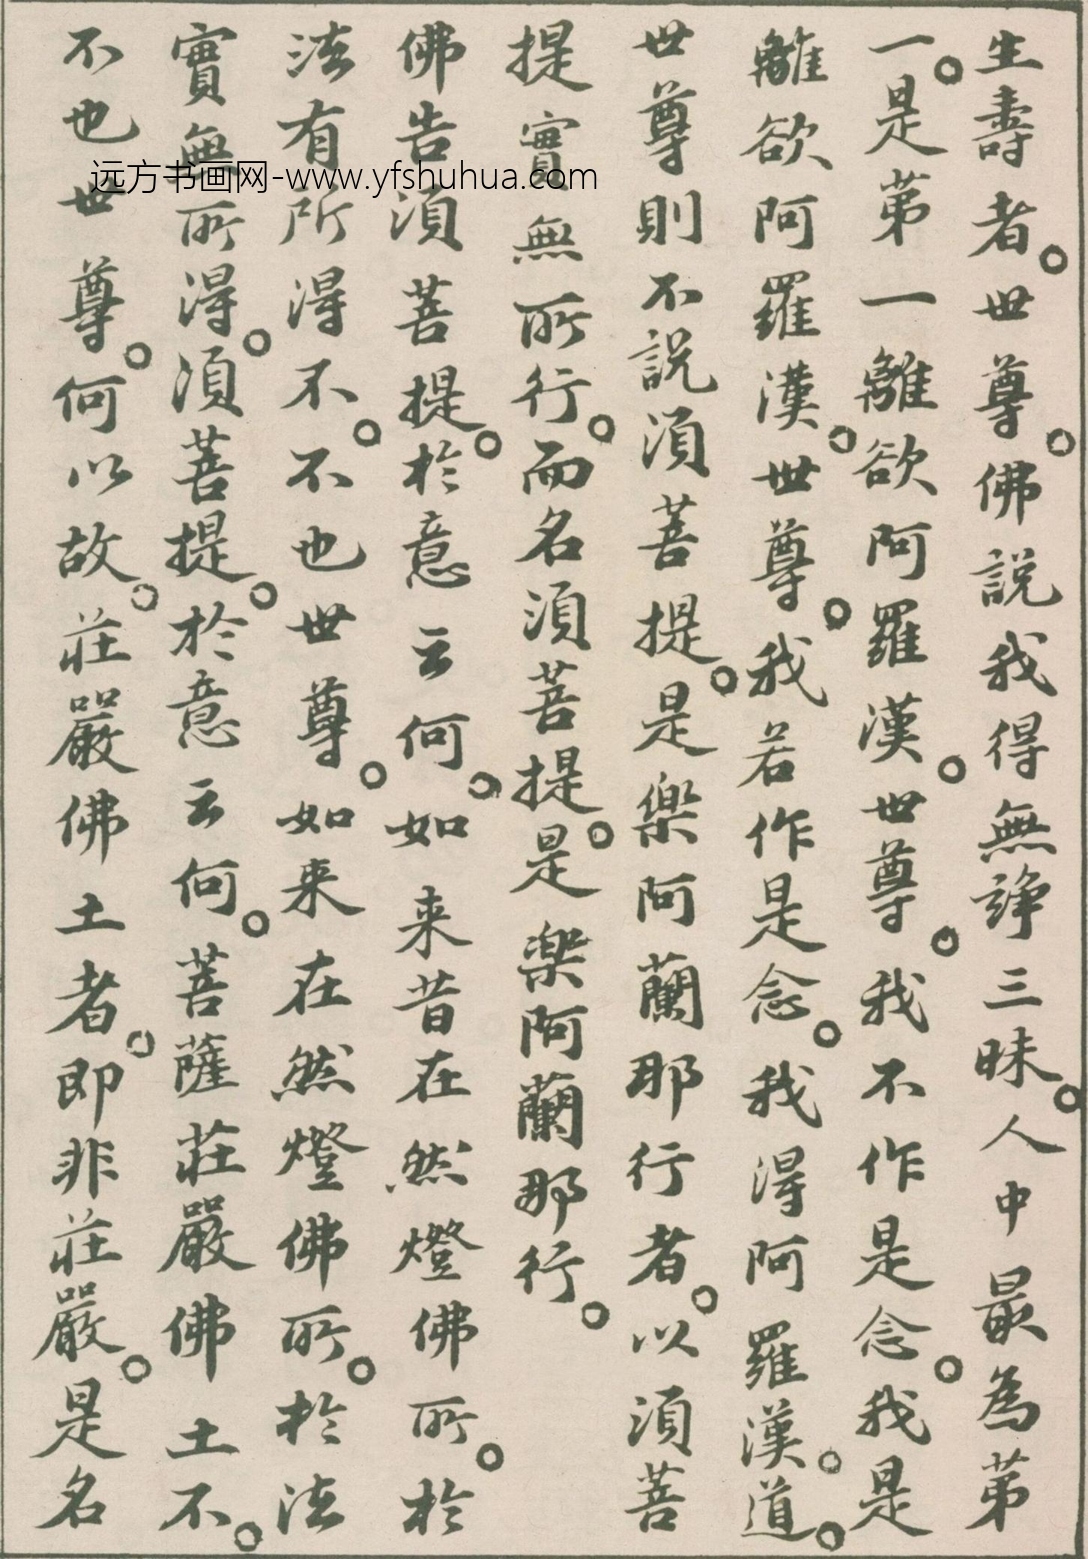 生壽者。世尊。佛說我得無諍三昧。人中最為第
一。是第一離欲阿羅漢。世尊。我不作是念。我是
離欲阿羅漢。世尊。我若作是念。我得阿羅漢。道。
世尊則不說須菩提。是樂阿蘭那行者。以須菩
提實無所行。而名須菩提。是樂阿蘭那行。
佛告須菩提。於意云何。如来昔在然燈佛所。於
法有所得不。不也世尊。如来在然燈佛所。於法
實無所得。須菩提。於意云何。菩薩莊嚴佛土不。
不也世尊。何以故。莊嚴佛土者。即非莊嚴。是名
远方书画网-www.yfshuhua.com